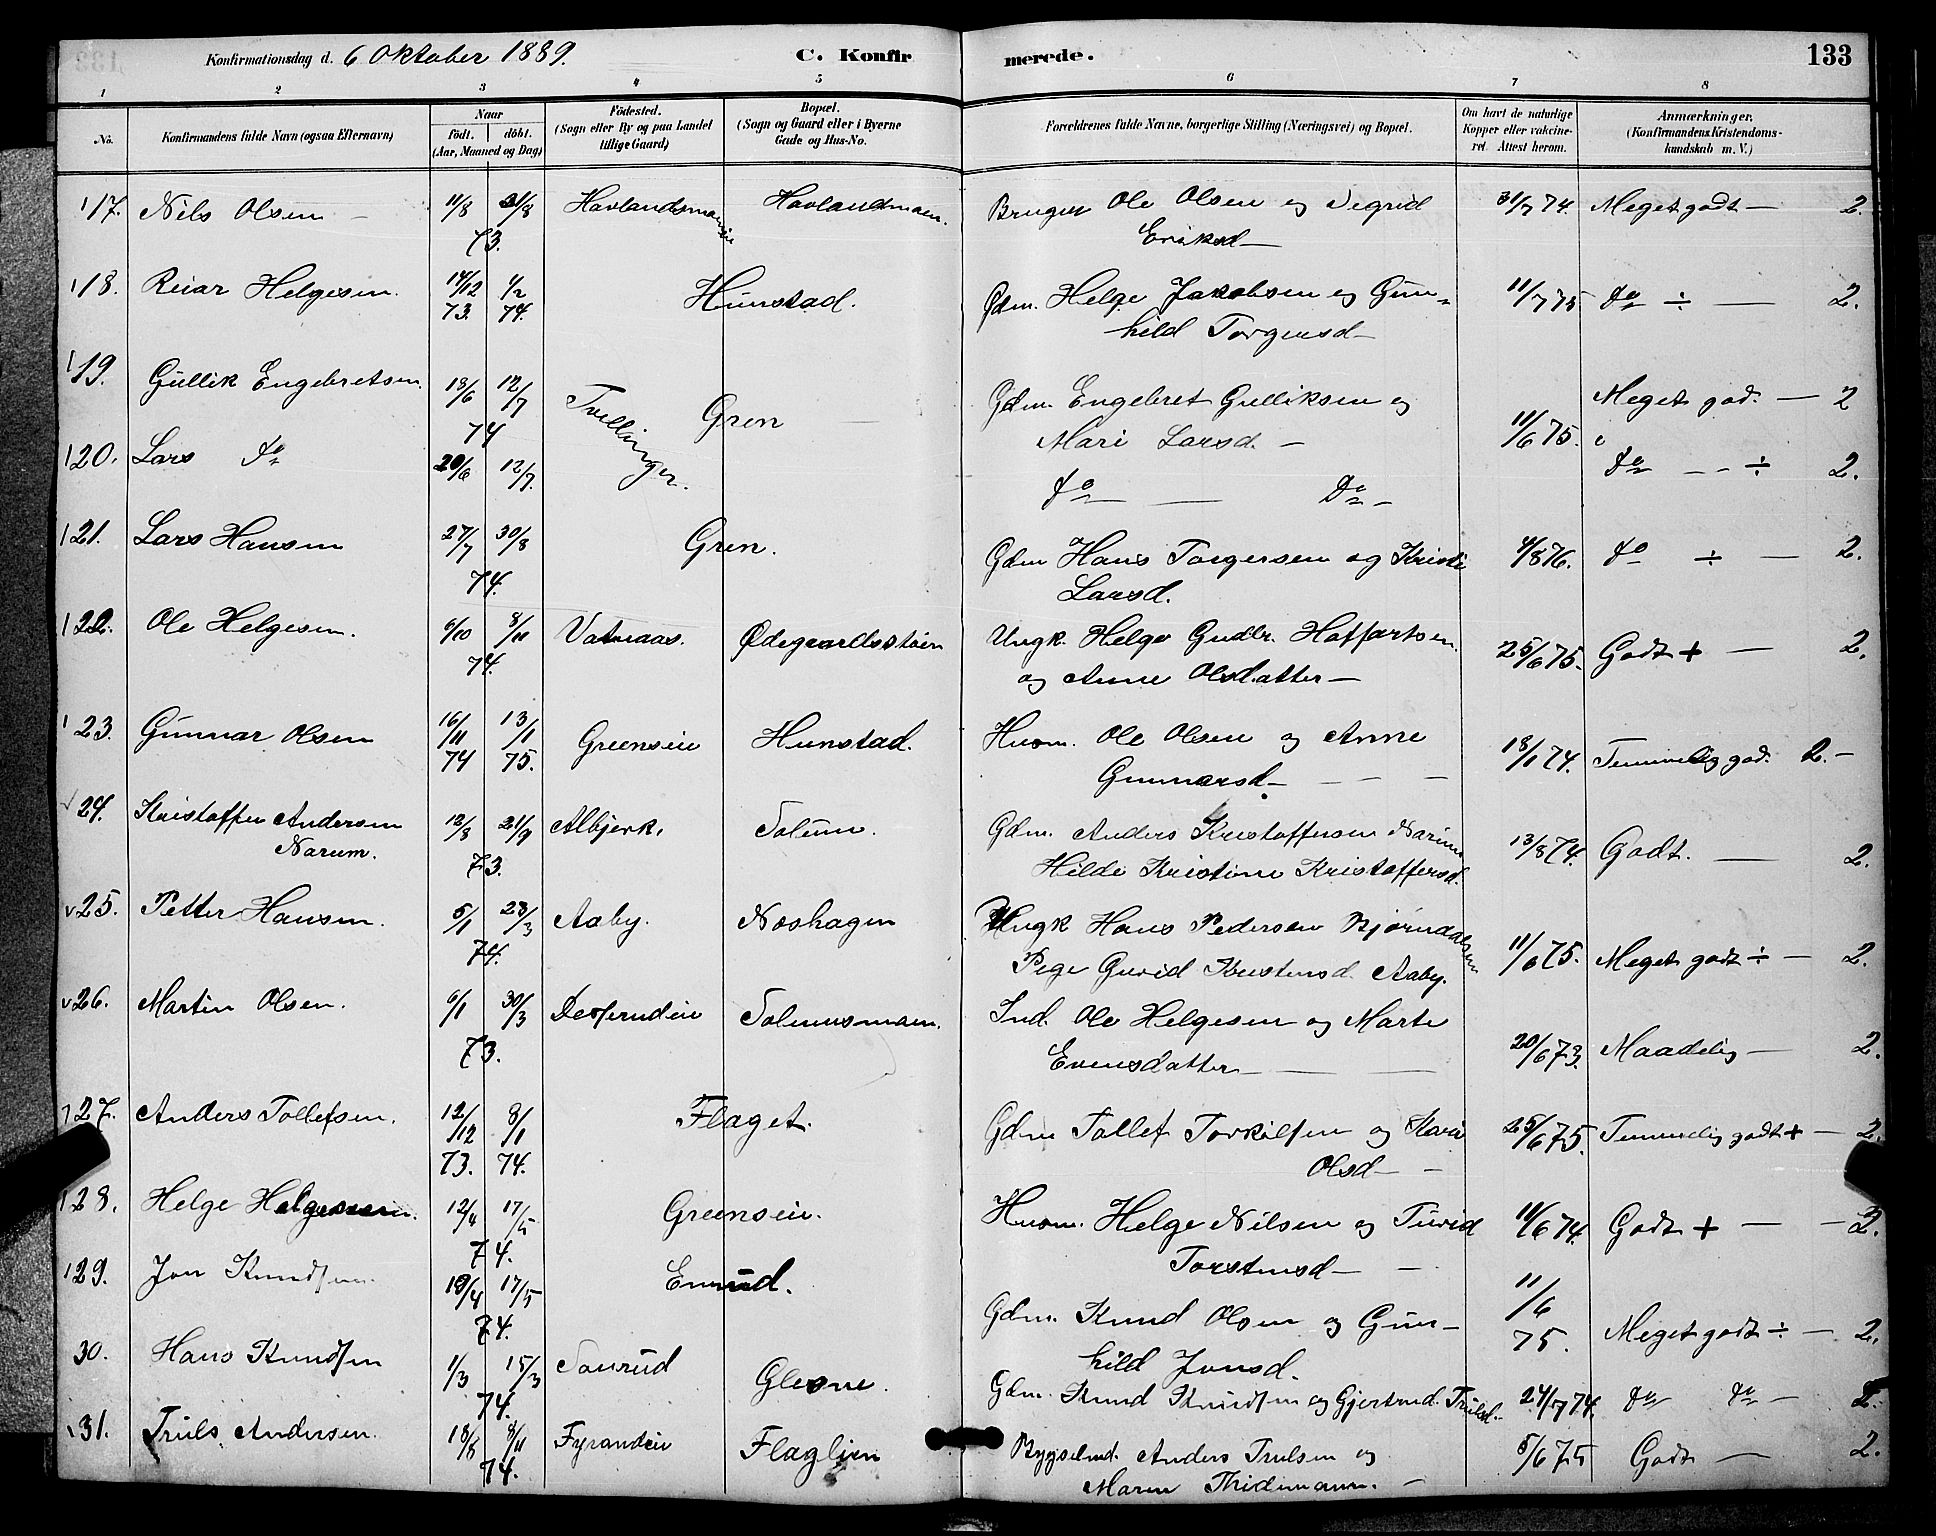 Konfirmationsdag d. 6 Oktober 1889. C. Konfirmerede. 133
1 2 3 4 5 6 7 8
No. Konfirmandens fulde Navn (ogsaa Efternavn) Naar født. døbt. (Aar, Maaned og Dag) Fødested. (Sogn eller By og paa Landet tillige Gaard) Bopæl. (Sogn og Gaard eller i Byerne Gade og Hus-No. Forældrenes fulde Navne, borgerlige Stilling (Næringsvei) og Bopæl. Om havt de naturlige Kopper eller vakcineret. Attest herom. Anmærkninger. (Konfirmandens Kristendomskundskab m. V.)
17. Nils Olsen 11/8 31/8 Havlandsmoeie Havlandmoen. Bruger Ole Olsen og Segrid 31/7 74. Meget godt — 2.
73. Eriksd —
18. Reiar Helgesen. 14/12 1/2 Hunstad. Gdm. Helge Jakobsen og Gun- 11/7 75 do ÷ — 2.
73. 74. hild Torgersd —
19. Gullik Engebretsen. 18/6 12/7 Tvillinger. Gren Gdm. Engebret Gulliksen og 11/6 75. Meget god. — 2
74 Mari Larsd. —
20. Lars do 20/6 12/7. do — Do — do — ÷ 2.
21. Lars Hansen 27/7 30/8 Gren. Gdm Hans Torgersen og Kristi 4/8 76. do ÷ — 2.
74. Larsd.
22. Ole Helgesen. 6/10 8/11 Vatnaas. Ødegaardsstøen Ungk. Helge Gudbr. Hoffartsen. 25/6 75. Godt + — 2.
74. og Anne Olsdatter —
23. Gunnar Olsen 16/11 13/1 Greenseie Hunstad. Husm. Ole Olsen og Anne 18/1 74. Temmelig god. 2. —
74 75. Gunnarsd —
24. Kristoffer Andersen 12/8 21/9 Albjerk. Solum. Gdm. Anders Kristoffersen Narum 13/8 74. Godt. — 2.
Narum. 73. Hilde Kristine Kristoffersd.
25. Petter Hansen. 5/1 23/3 Aaby. Næshagen Ungk Hans Pedersen Bjørndalsen 11/6 75. Meget godt ÷ — 2.
74. Pige Guvid Kristensd. Aaby.
26. Martin Olsen. 6/1 30/3 Solumsmoen. Ind. Ole Helgesen og Marte 20/6 73. Maadelig — 2.
73. Evensdatter —
27. Anders Tollefsen. 12/12 8/1 Flaget. Gdm Tollef Torkilsen og Kari 25/6 75. Temmelig godt + — 2.
73. 74. Olsd —
28. Helge Helgesen. 12/4 17/5 Greenseie. Husm. Helge Nilsen og Turid 11/6 74. Godt + — 2.
74. Torstensd —
29. Jon Knudsen. 19/4 17/5 Enerud. Gdm. Knud Olsen og Gun- 11/6 75. Meget godt ÷ — 2.
74. hild Jonsd.
30. Hans Knudsen 1/3 15/3 Glesne. Gdm. Knud Knudsen og Gjertrud Trulsd. 24/7 74. do do — 2.
74.
31. Truls Andersen. 18/8 8/11 Fyrandeie Flaglien Bygselmd. Anders Trulsen og 5/6 75 Godt — 2.
74. Maren Thidemann. —